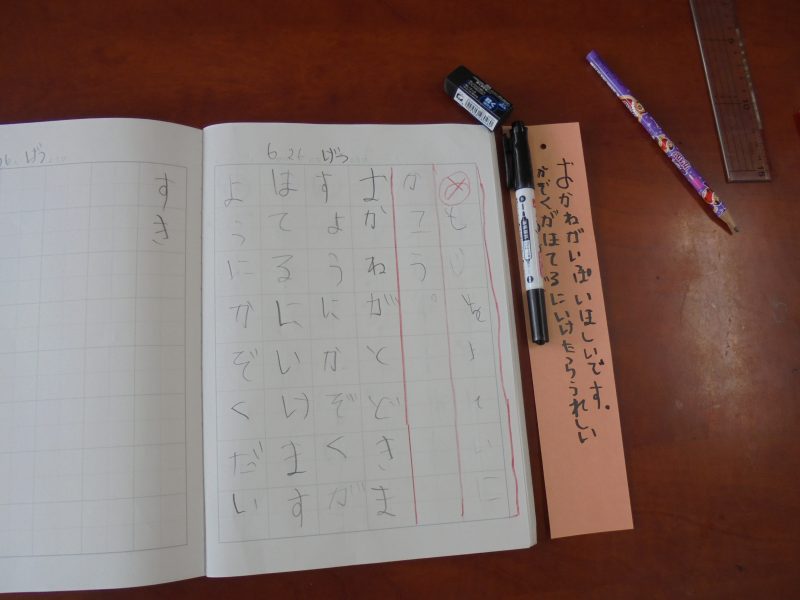 6 26 げつ
かこう。
おかねがとどきま
すようにかぞくが
はてるにいけます
ようにかぞくだい
26 げつ
すき
おかねがいぱいほしいです.
かぞくがほてるにいけたらうれしい